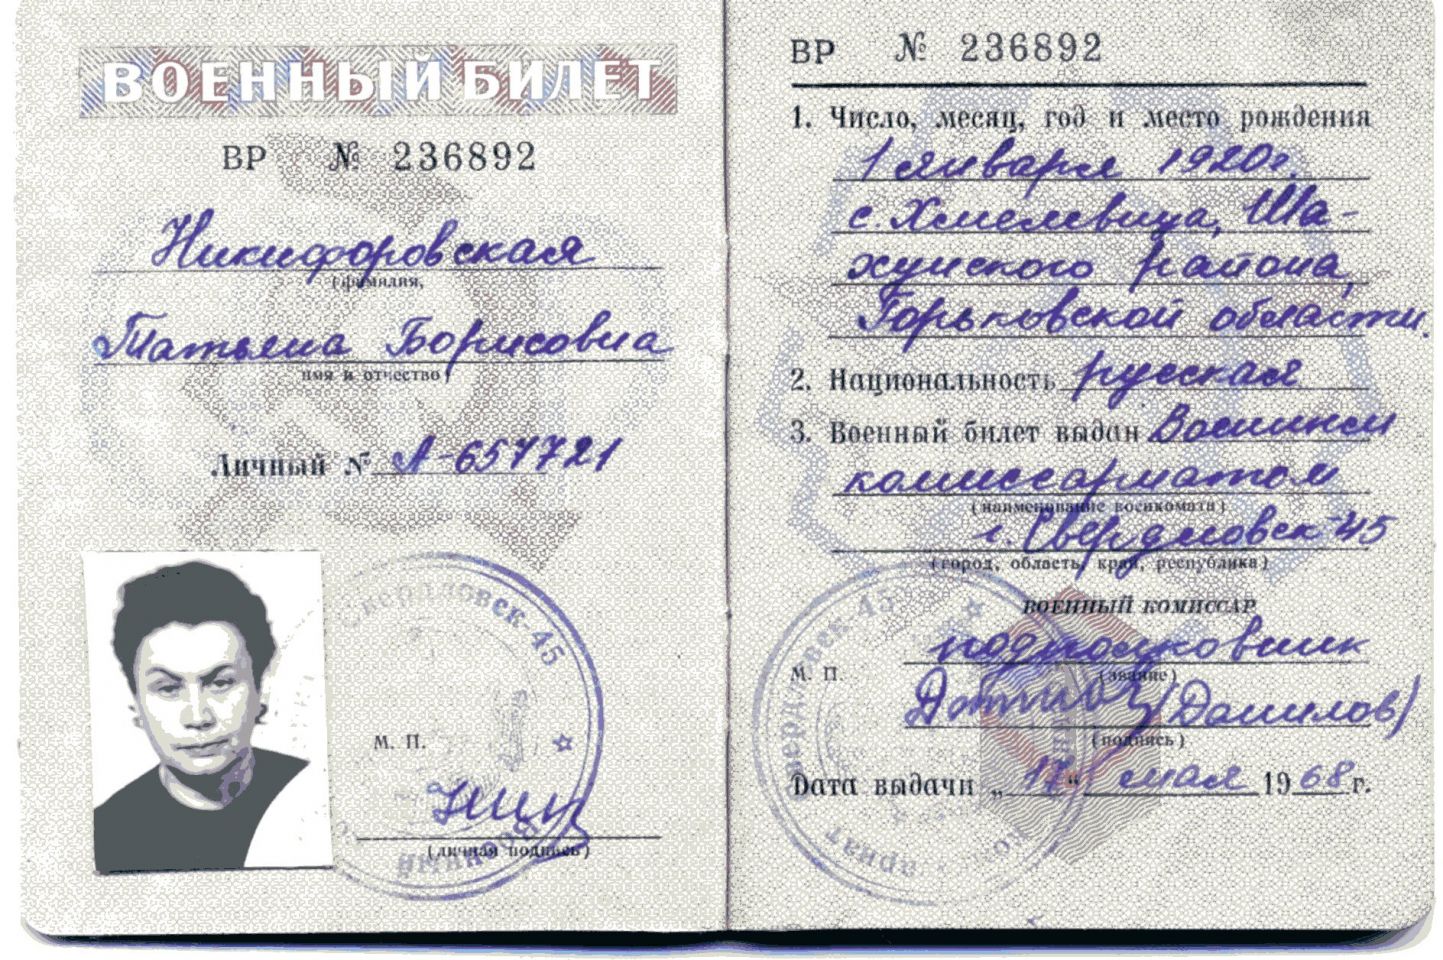 ВОЕННЫЙ БИЛЕТ
ВР № 236892
Никифоровская
(фамилия,
Татьяна Борисовна
имя и отчество)
Личный № А-657721
вердловск-45
М. П.
(личная подпись)
ВР № 236892
1. Число, месяц, год и место рождения
1 января 1920г.
с. Хмелевица, Ша-
хунского района,
Горьковской области.
2. Национальность русская
3. Военный билет выдан Военным
комиссариатом
(наименование военкомата)
г. Свердловск-45
(город, область, край, республика)
ВОЕННЫЙ КОМИССАР
подполковник
М. П. (звание)
(Данилов)
(подпись)
Дата выдачи „17“ мая 1968 г.
вердловск-45